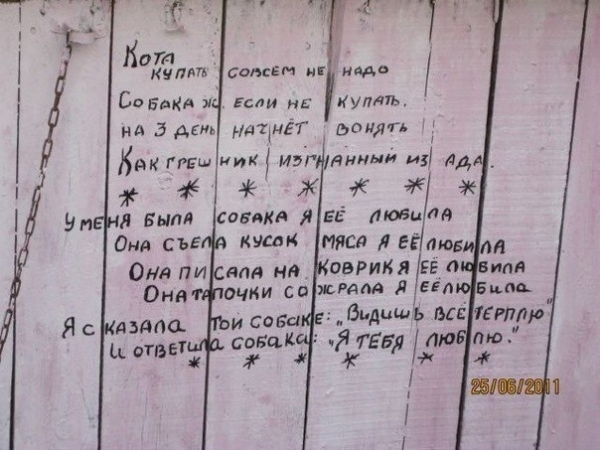 Кота
купать совсем не надо
Собака ж. если не купать.
на 3 день начнёт вонять
Как грешник изгнанный из ада.
* * * * * * *
У меня была собака я её любила
Она съела кусок мяса я её любила
Она писала на коврик я её любила
Она тапочки сожрала я её любила
Я сказала той собаке: „Видишь всё терплю"
И ответила собака: „Я тебя люблю."
* * * * * *
25/06/2011